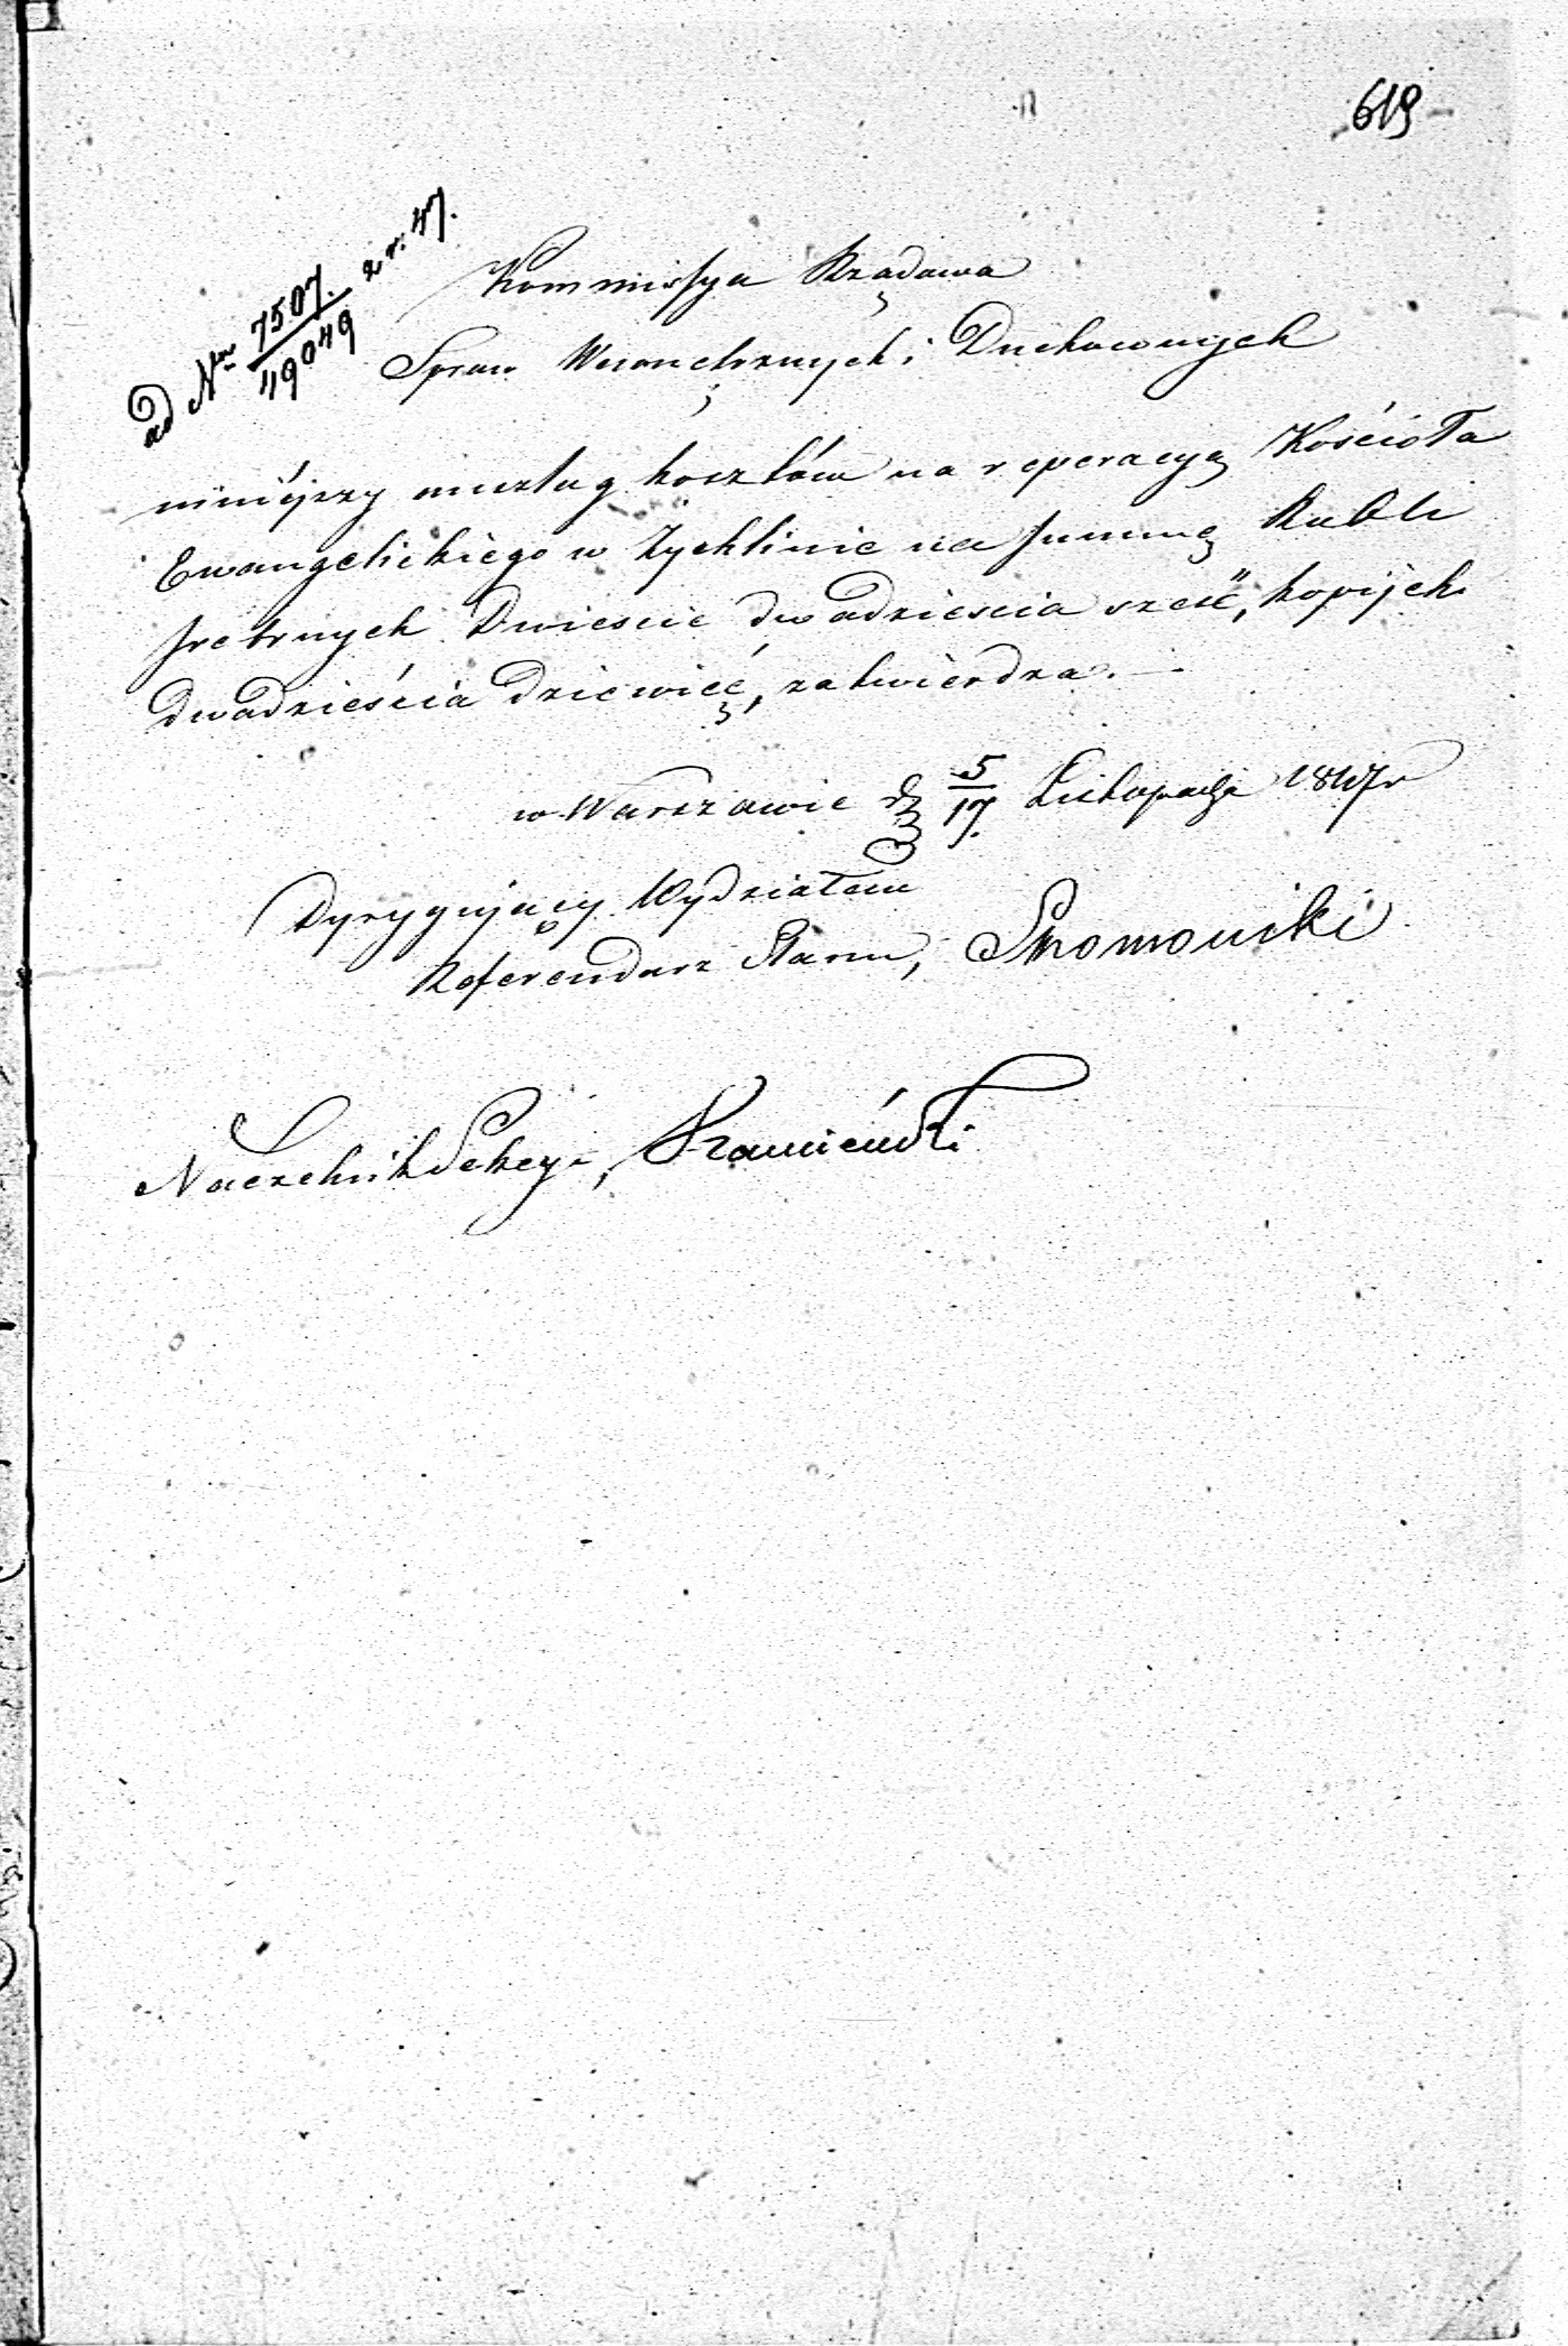 619
ad Nr 7507/49049 z r. 47.
Kommissya Rządowa
Spraw Wewnętrznych i Duchownych
niniéjszy anszlag kosztów na reperacyą Kościoła
Ewangelickiego w Żychlinie na summę Rubli
srebrnych Dwieście dwadzieścia sześć, kopijek
Dwadzieścia dziewięć, zatwierdza. —
w Warszawie d. 5/17 Listopada 1847 r
Dyrygujący Wydziałem
Referendarz Stanu,
Naczelnik Sekcyi, Kamieński